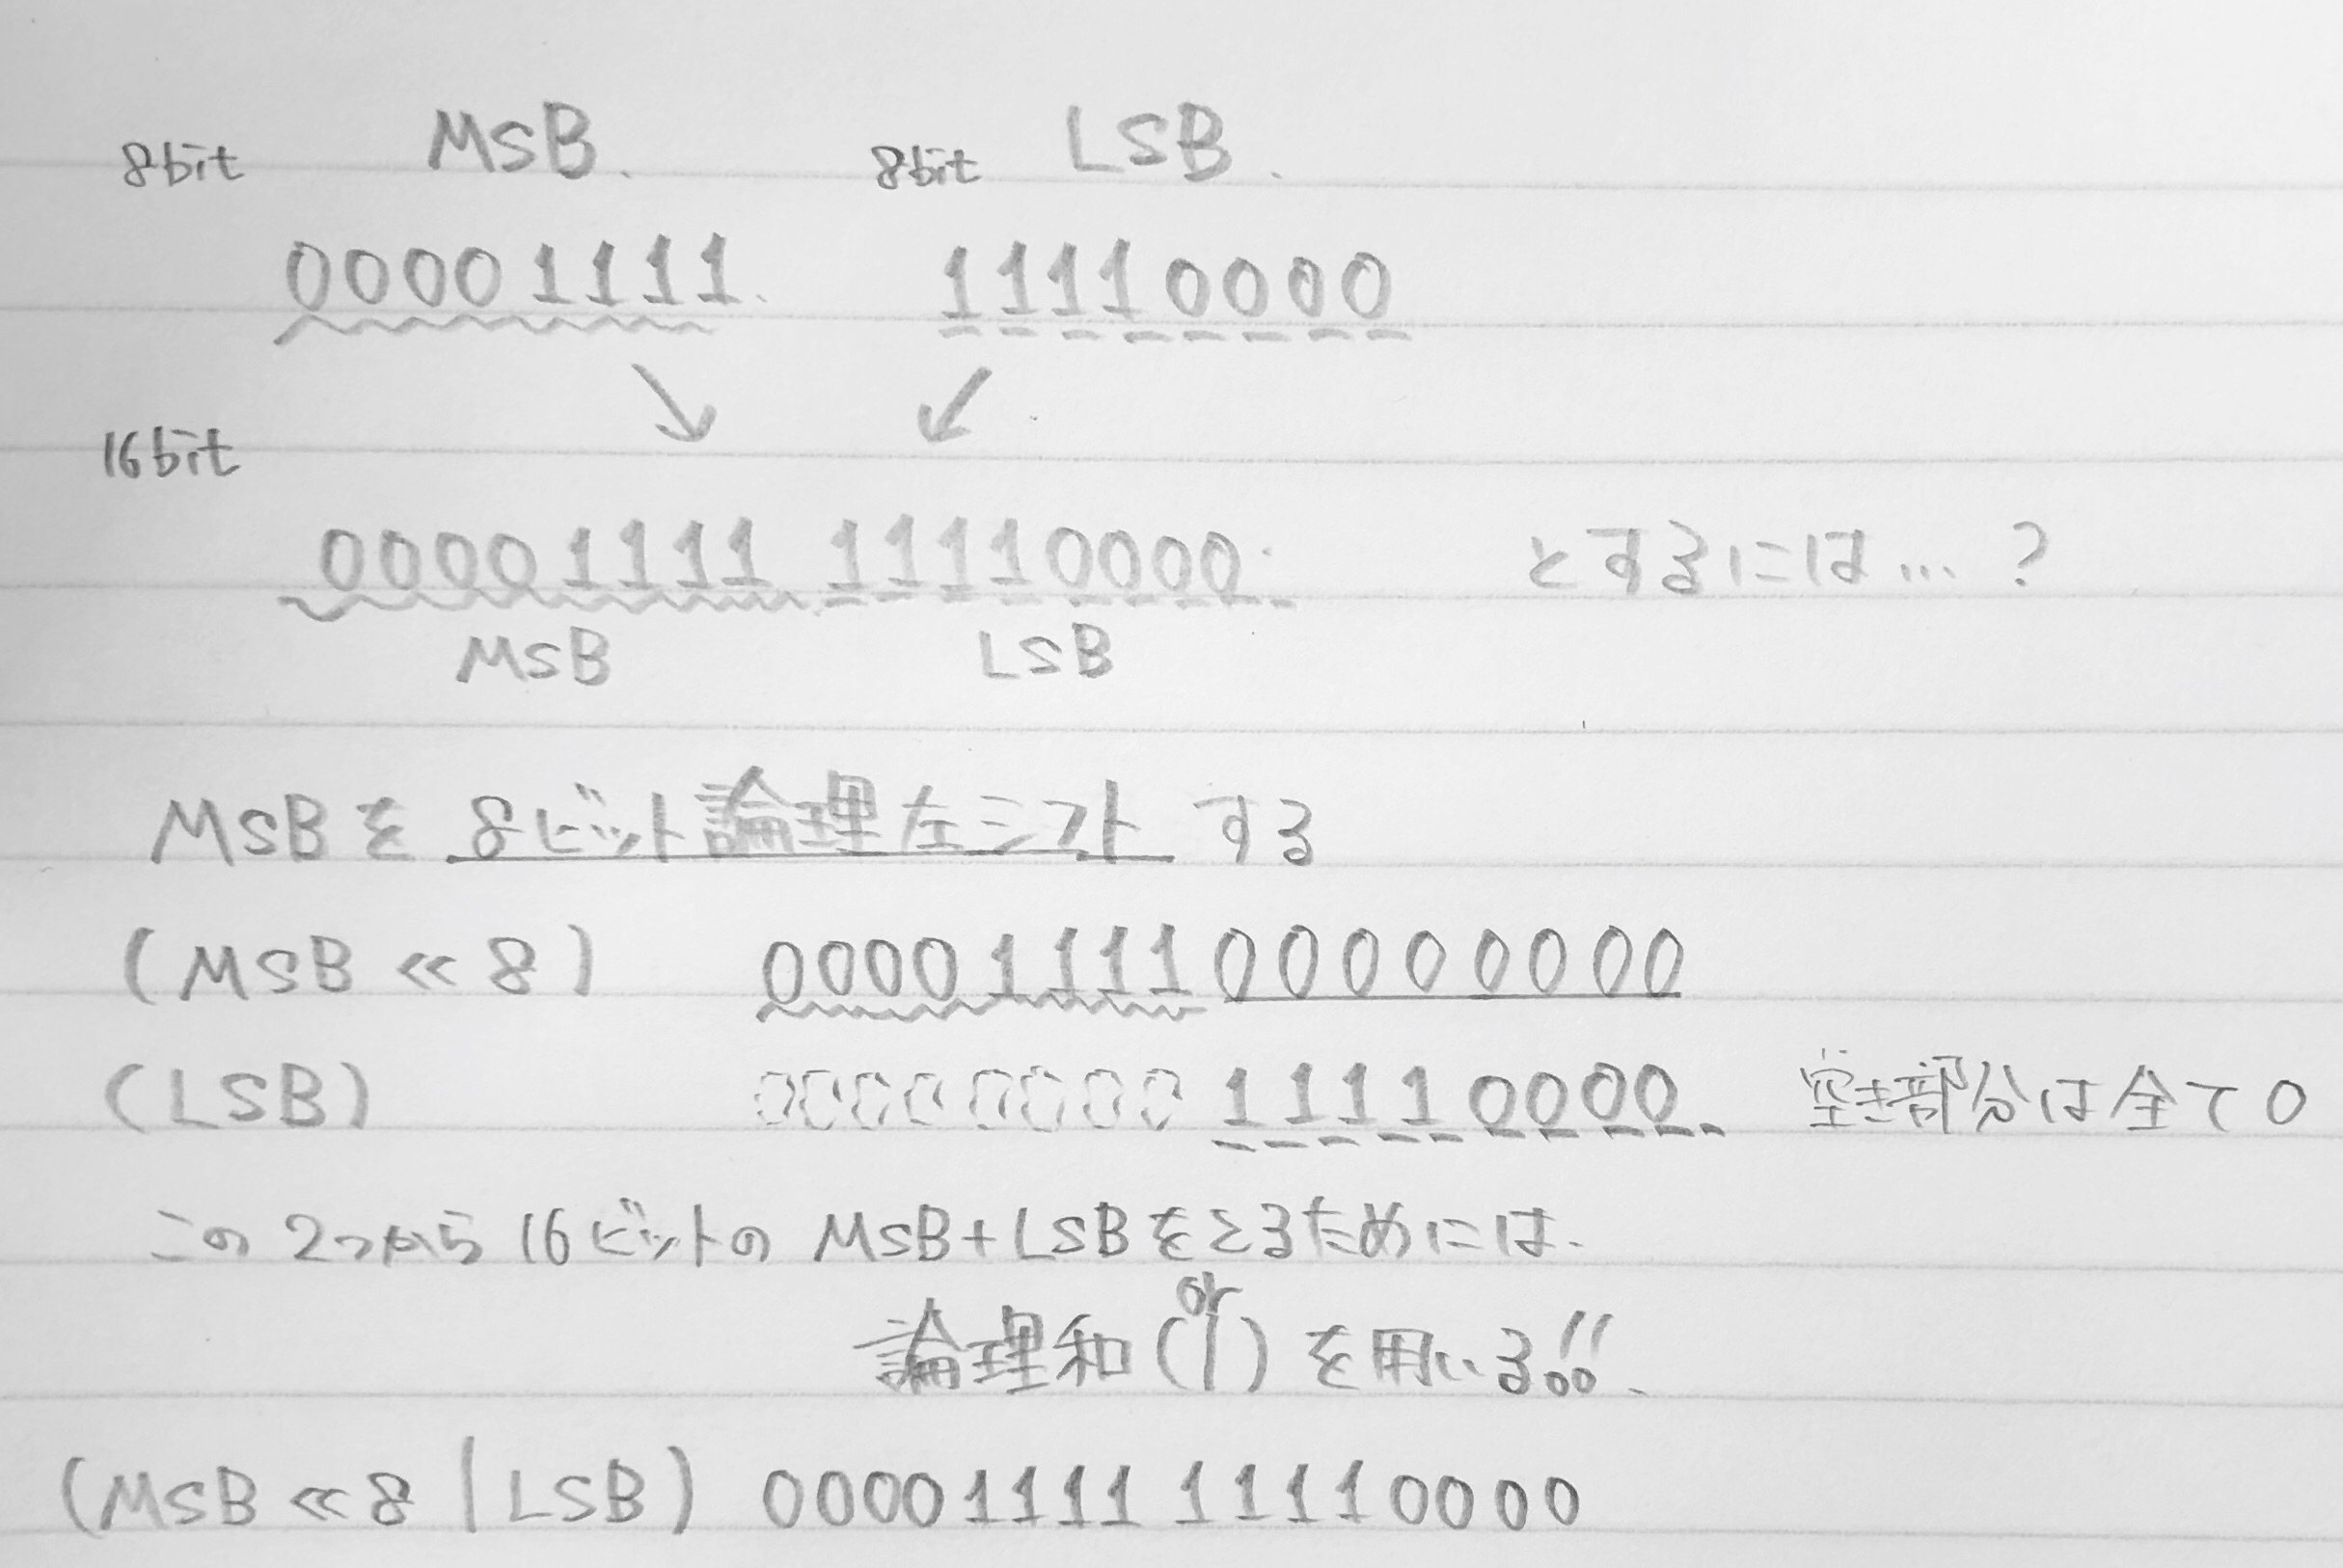 8bit MSB. 8bit LSB.
00001111. 11110000
16bit
00001111 11110000. とするには…?
MSB LSB
MSBを 8ビット論理左シフト する
(MSB << 8) 0000111100000000
(LSB) 0000000011110000 空き部分は全て0
この2つから16ビットの MSB+LSBをとるためには.
or
論理和(|)を用いる!!.
(MSB << 8 | LSB) 00001111 11110000